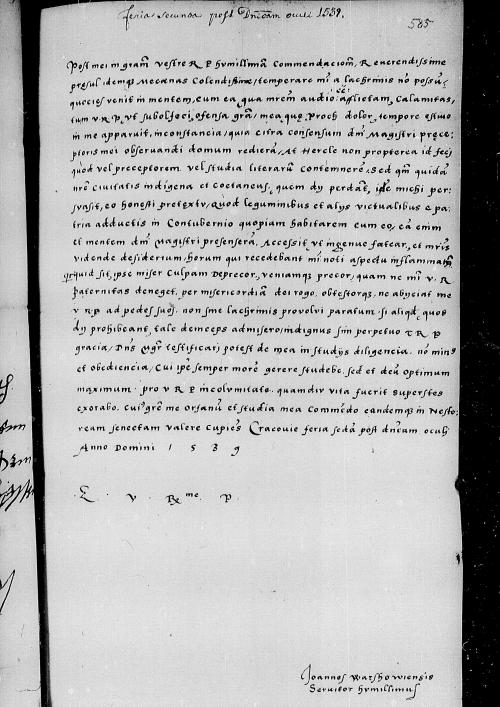 feria secunda post Dnicam oculi 1539.
585
Post mei in gram vestre R P humillimã commendaciom, Reverendissime
presul idemq Mecænas Colendissime, temperare mi a lachrimis nõ possũ,
quocies venit in mentem, cum ea qua mrem audio esse afflictam, Calamitas,
tum v R P, ut subolfeci, ofensa gra, mea quę, Proch dolor, tempore estivo
in me apparuit, inconstancia, quia citra consensum dni Magistri prece
ptoris mei observandi domum redierã, At Hercle non propterea id feci
quod vel preceptorem vel studia literarũ contemnerẽ, Sed qm quidã
nre civitatis indigena et coetaneus, quem dy perdãt, id michi per
svasit, eo honesti pretextu, Quod leguminibus et alys victualibus e pa
tria adductis in Contubernio quopiam habitarem cum eo, eã enim
et mentem dni Magistri presenserã, Accessit ut ingenue fatear, et mris
vidende desiderium, horum qui recedebant mi noti aspectu inflammatũ
quid sit, ipse miser culpam deprecor, veniamq precor, quam ne mi v. R
Paternitas deneget, per misericordiã dei rogo, obtestorq, ne abyciat me
v R P ad pedes suos, non sine lachrimis provolvi paratum, si aliqd, quod
dy prohibeant, tale deinceps admisero, indignus sim perpetuo v R P
gracia, Dns Mgr testificari potest de mea in studys diligencia, nõ minus
et obediencia, Cui ipse semper morẽ gerere studebo, sed et deũ Optimum
maximum, pro v R P incolumitate, quamdiu vita fuerit superstes
exorabo, cui grõe me orfanũ et studia mea Commẽdo eandemq in Nesto
ream senectam valere cupiens Cracovie feria secda post dnicam oculi
Anno Domini 1 5 3 9
E. v. Rme P.
Joannes Warshowiensis
Servitor humillimus